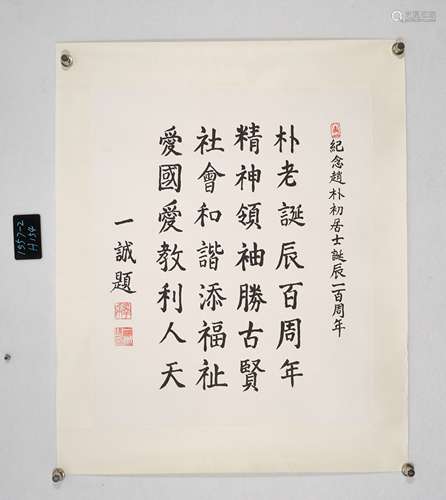 紀念趙朴初居士誕辰一百周年
朴老誕辰百周年
精神領袖勝古賢
社會和諧添福祉
愛國愛教利人天
一誠題
1957-2
H134